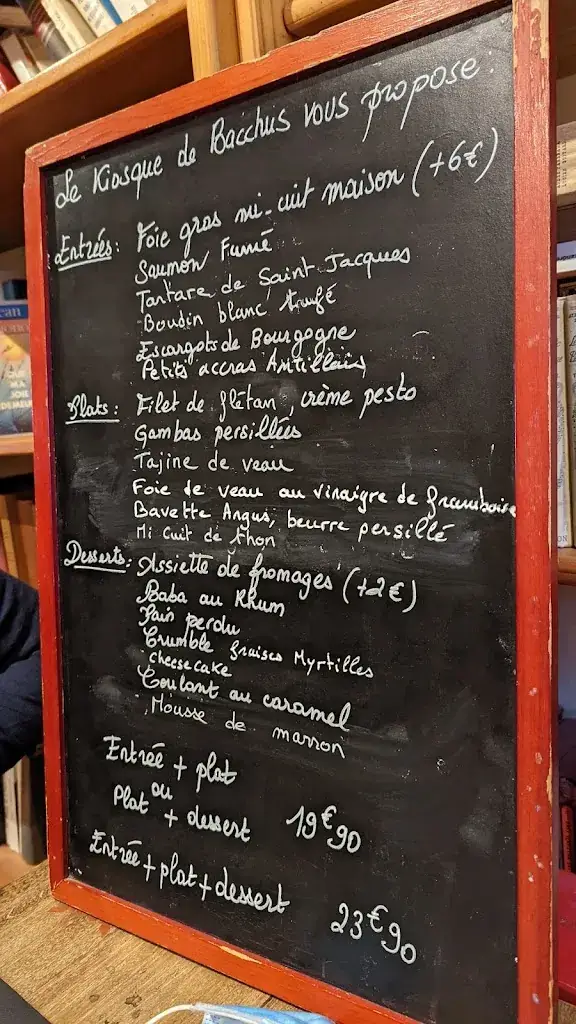 Le Kiosque de Bacchus vous propose :
Entrées : Foie gras mi-cuit maison (+6€)
Saumon Fumé
Tartare de Saint Jacques
Boudin blanc truffé
Escargots de Bourgogne
Petits accras Antillais
Plats : Filet de flétan, crème pesto
Gambas persillées
Tajine de veau
Foie de veau au vinaigre de framboise
Bavette Angus, beurre persillé
Mi cuit de thon
Desserts : Assiette de fromages (+2€)
Baba au Rhum
Pain perdu
Crumble fraises Myrtilles
cheesecake
Coulant au caramel
Mousse de marron
Entrée + plat
ou
Plat + dessert 19€90
Entrée + plat + dessert 23€90